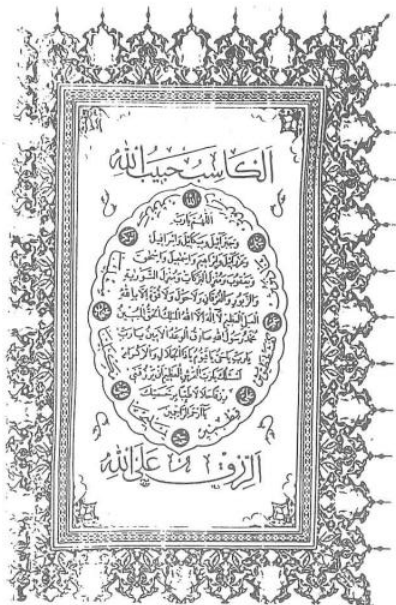 الكاسب حبيب الله
الله
اللهم يارب
وجبرائيل وميكائيل واسرافيل
وعزرائيل وابراهيم واسمعيل واسحق
ويعقوب ومنزل البركات ومنزل التورية
والزبور والفرقان ولا حول ولا قوة الا بالله
العلي العظيم لا اله الا الله الملك الحق المبين
محمد رسول الله صادق الوعد الامين يارب
يارب ياحي ياقيوم ياذا الجلال والاكرام
اسئلك يارب العرش العظيم ان يرزقني
رزقا حلالا طيبا برحمتك
يا ارحم الراحمين
الرزق على الله